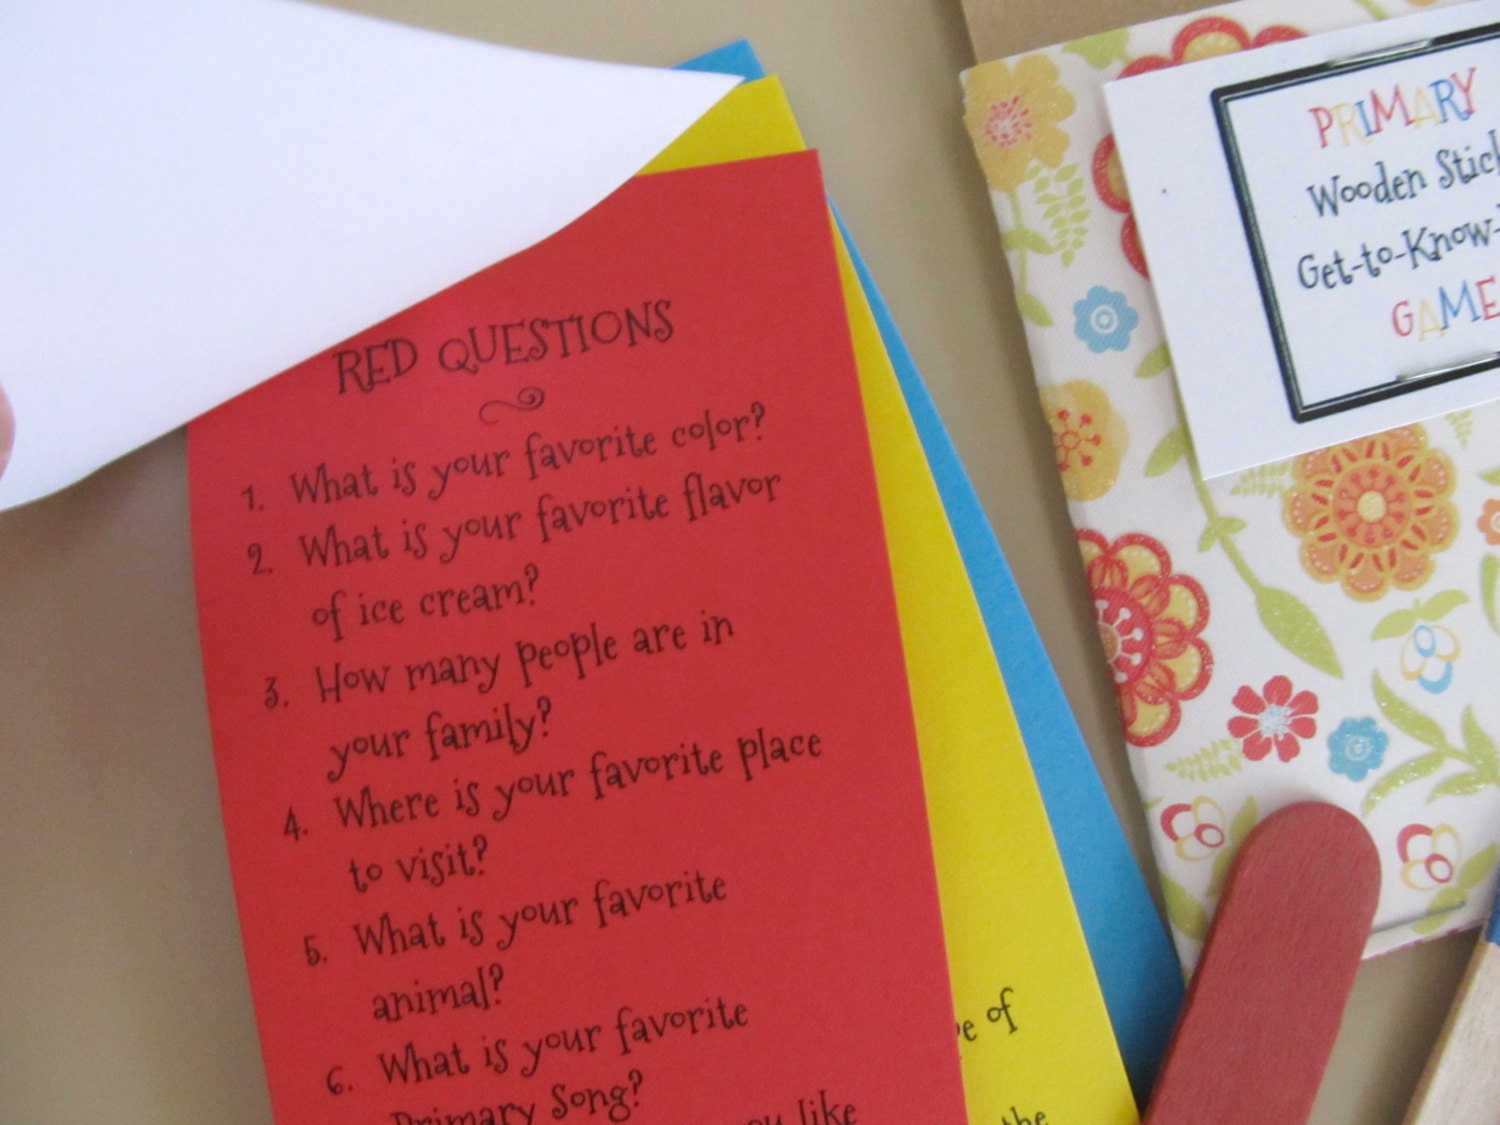 RED QUESTIONS
1. What is your favorite color?
2. What is your favorite flavor
of ice cream?
3. How many people are in
your family?
4. Where is your favorite place
to visit?
5. What is your favorite
animal?
6. What is your favorite
Primary Song?
like
of
the
PRIMARY
Wooden
Get-to-Know-
GAME